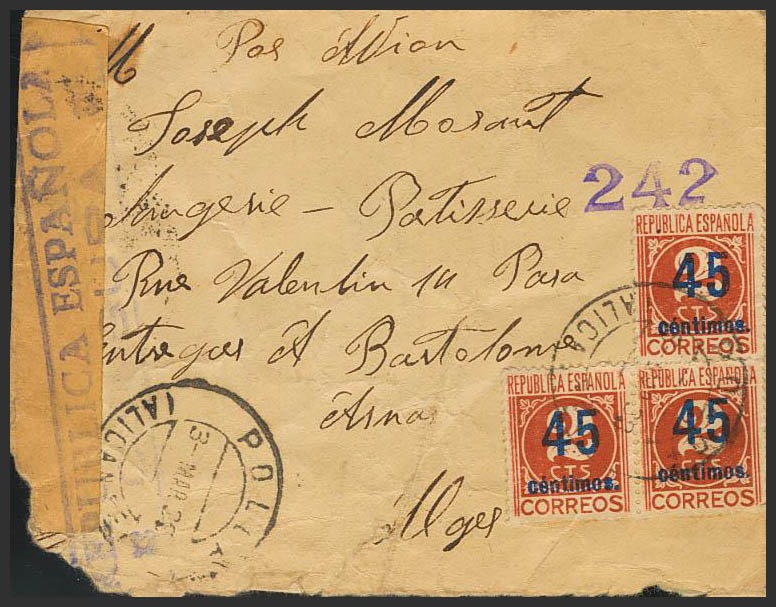 Par Avion
Joseph Morant
Patisserie
242
Rue Valentin 14 Para
entregar A Bartolome
Asnar
Alger
REPUBLICA ESPAÑOLA
45
céntimos.
CORREOS
REPUBLICA ESPAÑOLA
45
2
CTS
céntimos.
CORREOS
REPUBLICA ESPAÑOLA
45
2
CTS
céntimos.
CORREOS
REPUBLICA ESPAÑOLA
(ALICANTE)